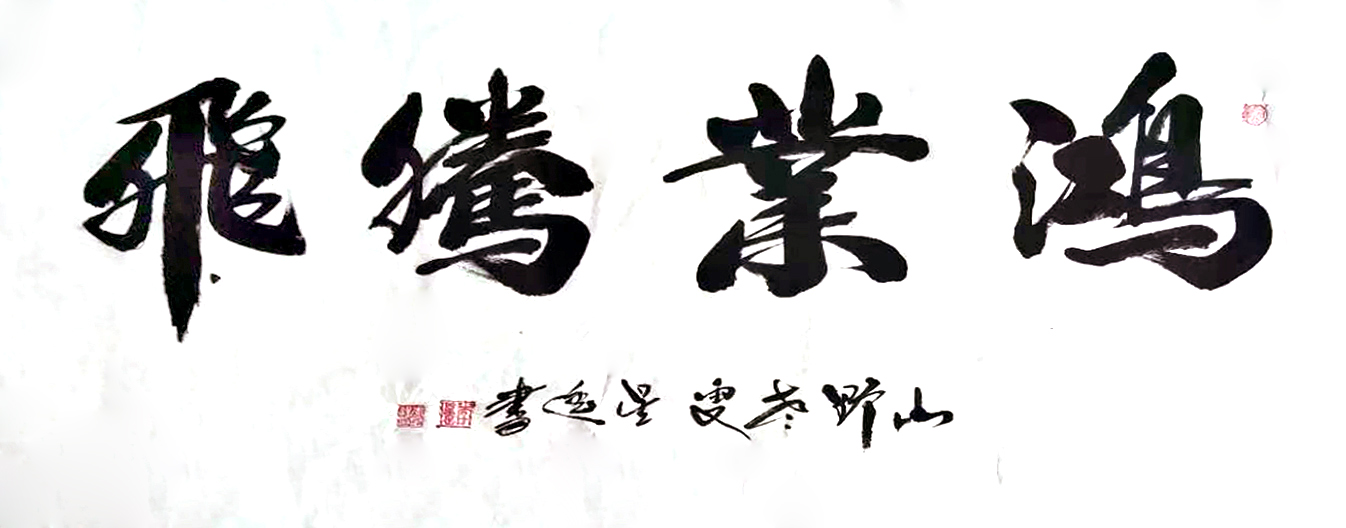 鴻業騰飛
山野老叟星逸書